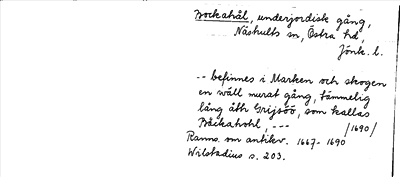 Bockahål, underjordisk gång,
Näshults sn, Östra hd,
Jönk. l.
-- befinnes i Marken och skogen
en wäll murat gång, tämmelig
lång åth Grijsöö, som kallas
Båckahohl, --- /1690/
Ranns. om antikv. 1667-1690
Wilstadius s. 203.